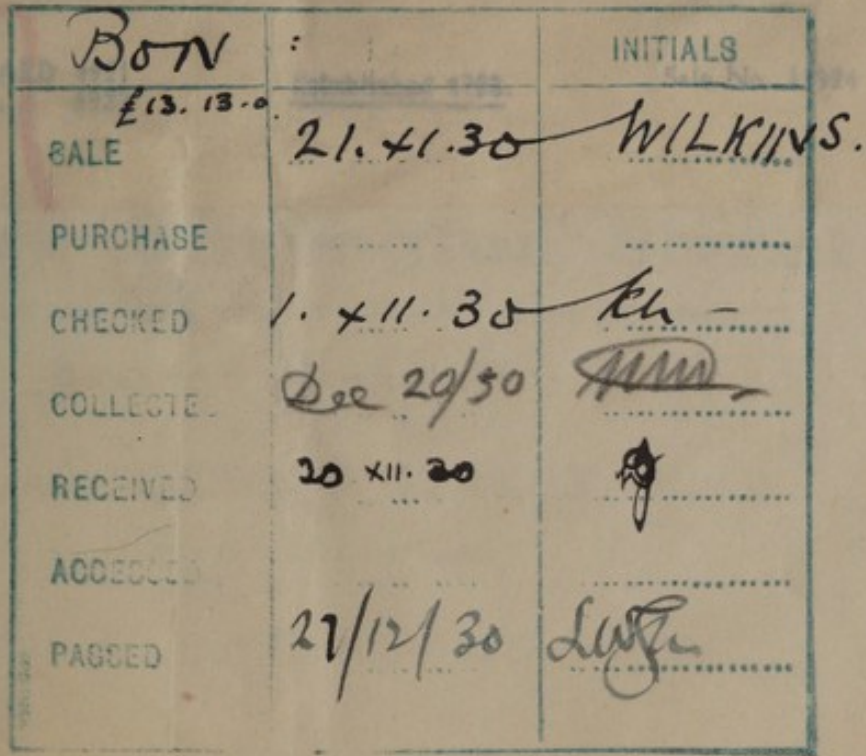 BON : INITIALS
£13.13.0
SALE 21.XI.30 WILKINS.
PURCHASE
CHECKED 1.XII.30 KH -
COLLECTE
Dec 20/30
RECEIVED 20 XII.30
ACCESSED
PASSED 27/12/30